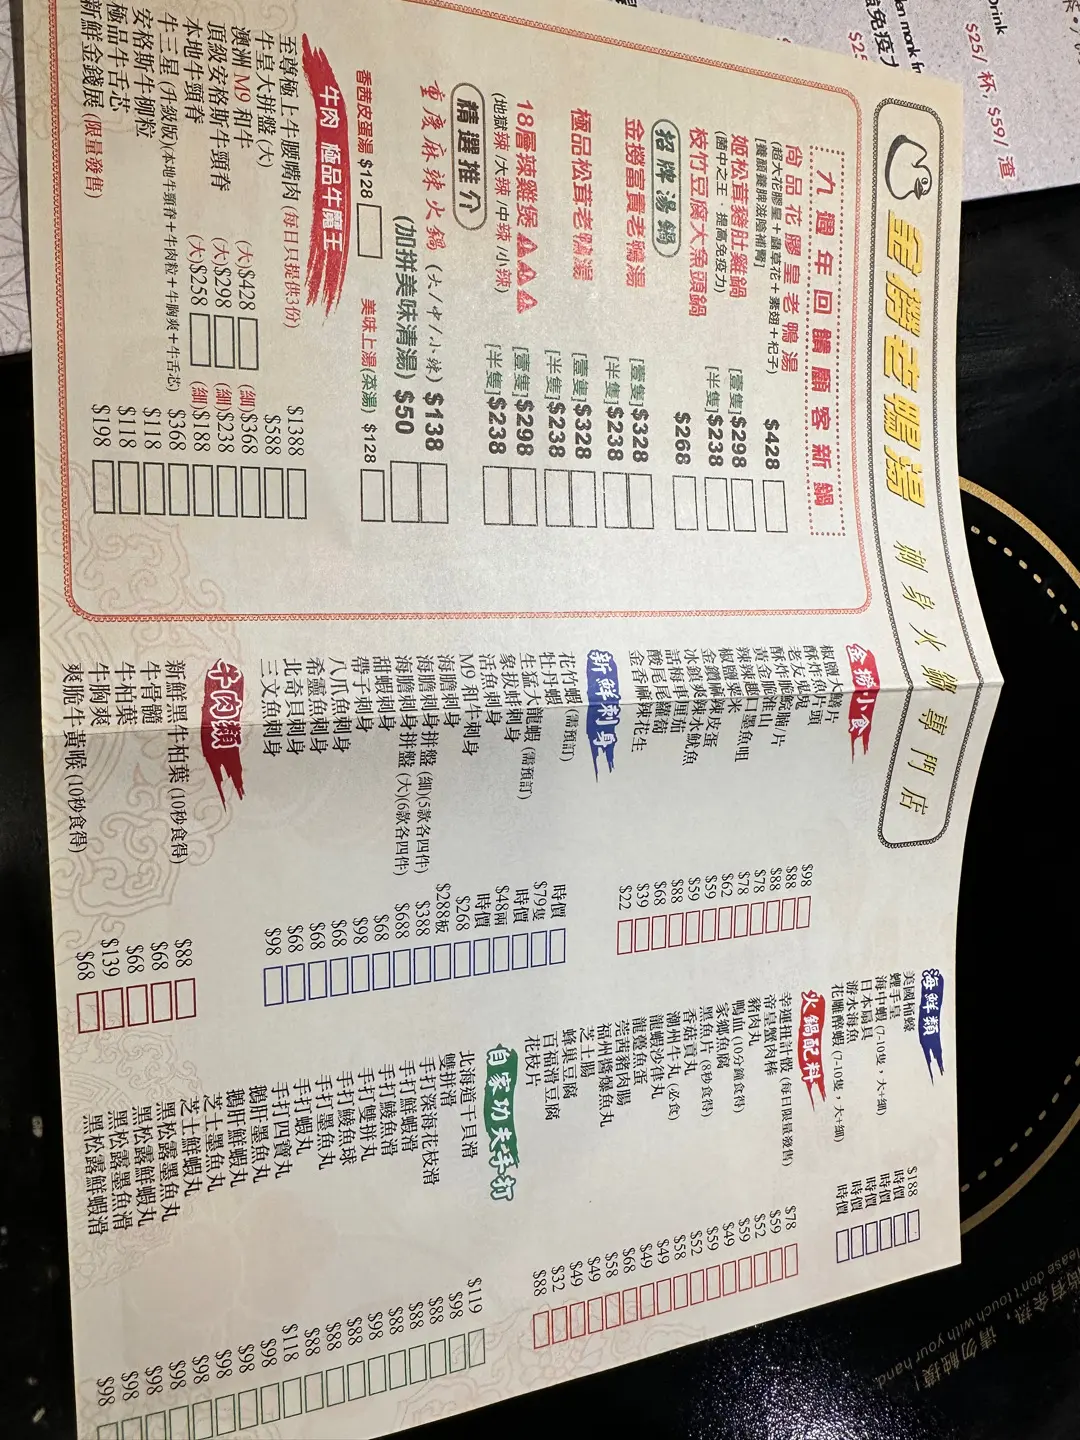 金撈老鴨湯 刺身火鍋專門店
九週年回饋顧客新鍋
尚品花膠皇老鴨湯 $428
(超大花膠皇＋蟲草花＋素翅＋杞子)
[養顏養脾滋陰補腎]
姬松茸豬肚雞鍋 [壹隻]$298
(菌中之王．提高免疫力) [半隻]$238
枝竹豆腐大魚頭鍋 $268
招牌湯鍋
金撈富貴老鴨湯 [壹隻]$328
[半隻]$238
極品松茸老鴨湯 [壹隻]$328
[半隻]$238
18層辣雞煲 [壹隻]$298
(地獄辣/大辣/中辣/小辣) [半隻]$238
精選推介
重慶麻辣火鍋 (大/中/小辣) $138
(加拼美味清湯) $50
香茜皮蛋湯 $128
美味上湯(菜湯) $128
牛肉 極品牛魔王
至尊極上牛腰嘴肉 (每日只提供3份) $1388
牛皇大拼盤(大) $588
澳洲 M9 和牛 (大)$428 (細)$368
頂級安格斯牛頸脊 (大)$298 (細)$238
本地牛頸脊 (大)$258 (細)$188
牛三星(升級版)(本地牛頸脊＋牛肉粒＋牛胸爽＋牛舌芯) $368
安格斯牛柳粒 $118
極品牛舌芯 $118
新鮮金錢展 (限量發售) $198
金撈小食
椒鹽大腸片 $98
酥炸魚片頭 $88
老友鬼鬼 $88
酥炸脆豌腩片 $78
黃金脆淮山 $88
辣辣趣口墨魚咀 $78
椒鹽粟米 $62
金鑽麻辣皮蛋 $59
冰鎮爽辣水魷魚 $59
話梅車厘茄 $88
酸尾尾蘿蔔 $68
金香麻辣花生 $39
$22
新鮮刺身
花竹蝦 (需預訂) 時價
牡丹蝦 $79隻
生猛大龍蝦 (需預訂) 時價
象拔蚌刺身 $48兩
活魚刺身 時價
M9 和牛刺身 $268
海膽刺身 $288板
海膽刺身拼盤 (細)(5款各四件) $388
海膽刺身拼盤 (大)(6款各四件) $688
甜蝦刺身 $68
帶子刺身 $98
八爪魚刺身 $68
希靈魚刺身 $68
北奇貝刺身 $68
三文魚刺身 $98
牛肉類
新鮮黑牛柏葉 (10秒食得) $88
牛骨髓 $68
牛柏葉 $68
牛胸爽 $139
爽脆牛黃喉 (10秒食得) $68
海鮮類
美國桶蠔 $188
螺手皇 時價
海中蝦 (7-10隻，大+細) 時價
日本扇貝 時價
游水海魚 時價
花雕醉蝦 (7-10隻，大+細) 時價
火鍋配料
幸運扭計骰 (每日限量發售) $78
帝皇蟹肉棒 $59
豬肉丸 $52
鴨血 (10分鐘食得) $59
家鄉魚腐 $49
黑魚片 (8秒食得) $59
香菇貢丸 $52
潮州牛丸 (必食) $58
龍蝦沙律丸 $49
龍躉魚蛋 $49
莞茜豬肉腸 $68
福州醬爆魚丸 $58
芝士腸 $49
蜂巢豆腐 $49
百福滑豆腐 $32
花枝片 $88
自家功夫手打
北海道干貝滑 $119
雙拼滑 $98
手打深海花枝滑 $88
手打鮮蝦滑 $88
手打鯪魚滑 $88
手打雙拼丸 $98
手打鯪魚球 $88
手打墨魚丸 $88
手打蝦丸 $88
手打四寶丸 $118
鵝肝墨魚丸 $98
鵝肝鮮蝦丸 $98
芝士墨魚丸 $98
芝士鮮蝦丸 $98
黑松露墨魚丸 $98
黑松露鮮蝦丸 $98
黑松露墨魚滑 $98
黑松露鮮蝦滑 $98
Drink
$25/ 杯, $59/ 渣
免疫力
尚有余热，请勿触摸！
please don't touch with your hand